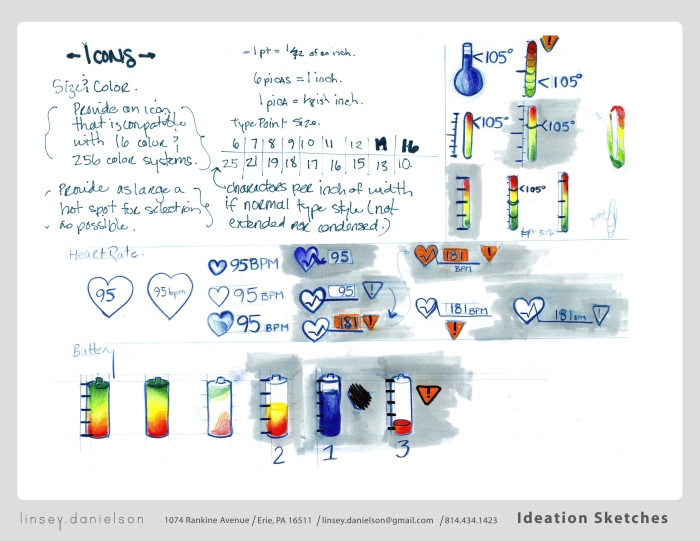 ←ICONS→
Size & Color.
Provide an icon
that is compatible
with 16 color ?
256 color systems.
Provide as large a
hot spot for selection
as possible.
- 1 pt = 1/72 of an inch.
6 picas = 1 inch.
1 pica = inch.
Type Point Size.
6 7 8 9 10 11 12 14 16
25 21 19 18 17 16 15 13 10.
characters per inch of width
if normal type style (not
extended nor condensed.)
<105°
!
<105°
<105°
<105°
<105°
Heart Rate.
95
95 bpm
95 BPM
95 BPM
95 BPM
95
95 !
181 !
181 !
BPM
181 BPM
!
181 BPM !
Battery
!
2
1
3
linsey.danielson
1074 Rankine Avenue / Erie, PA 16511 / linsey.danielson@gmail.com / 814.434.1423
Ideation Sketches